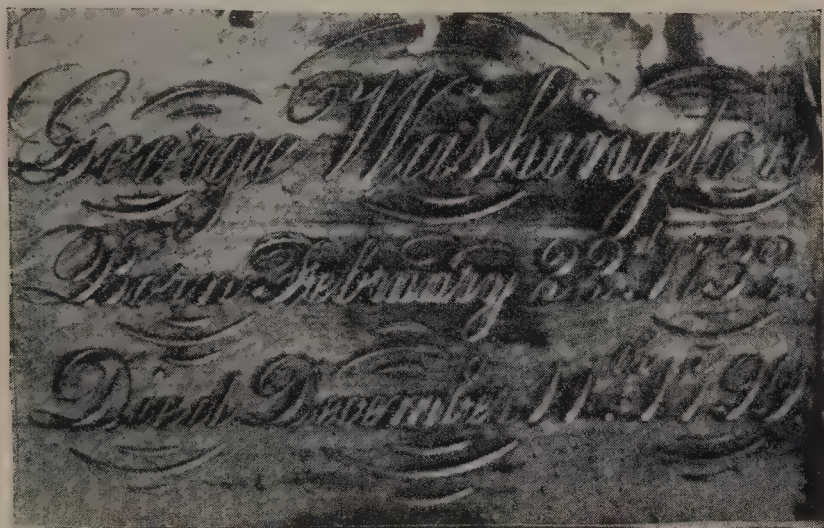 George Washington
Born February 22d. 1732.
Died December 1799